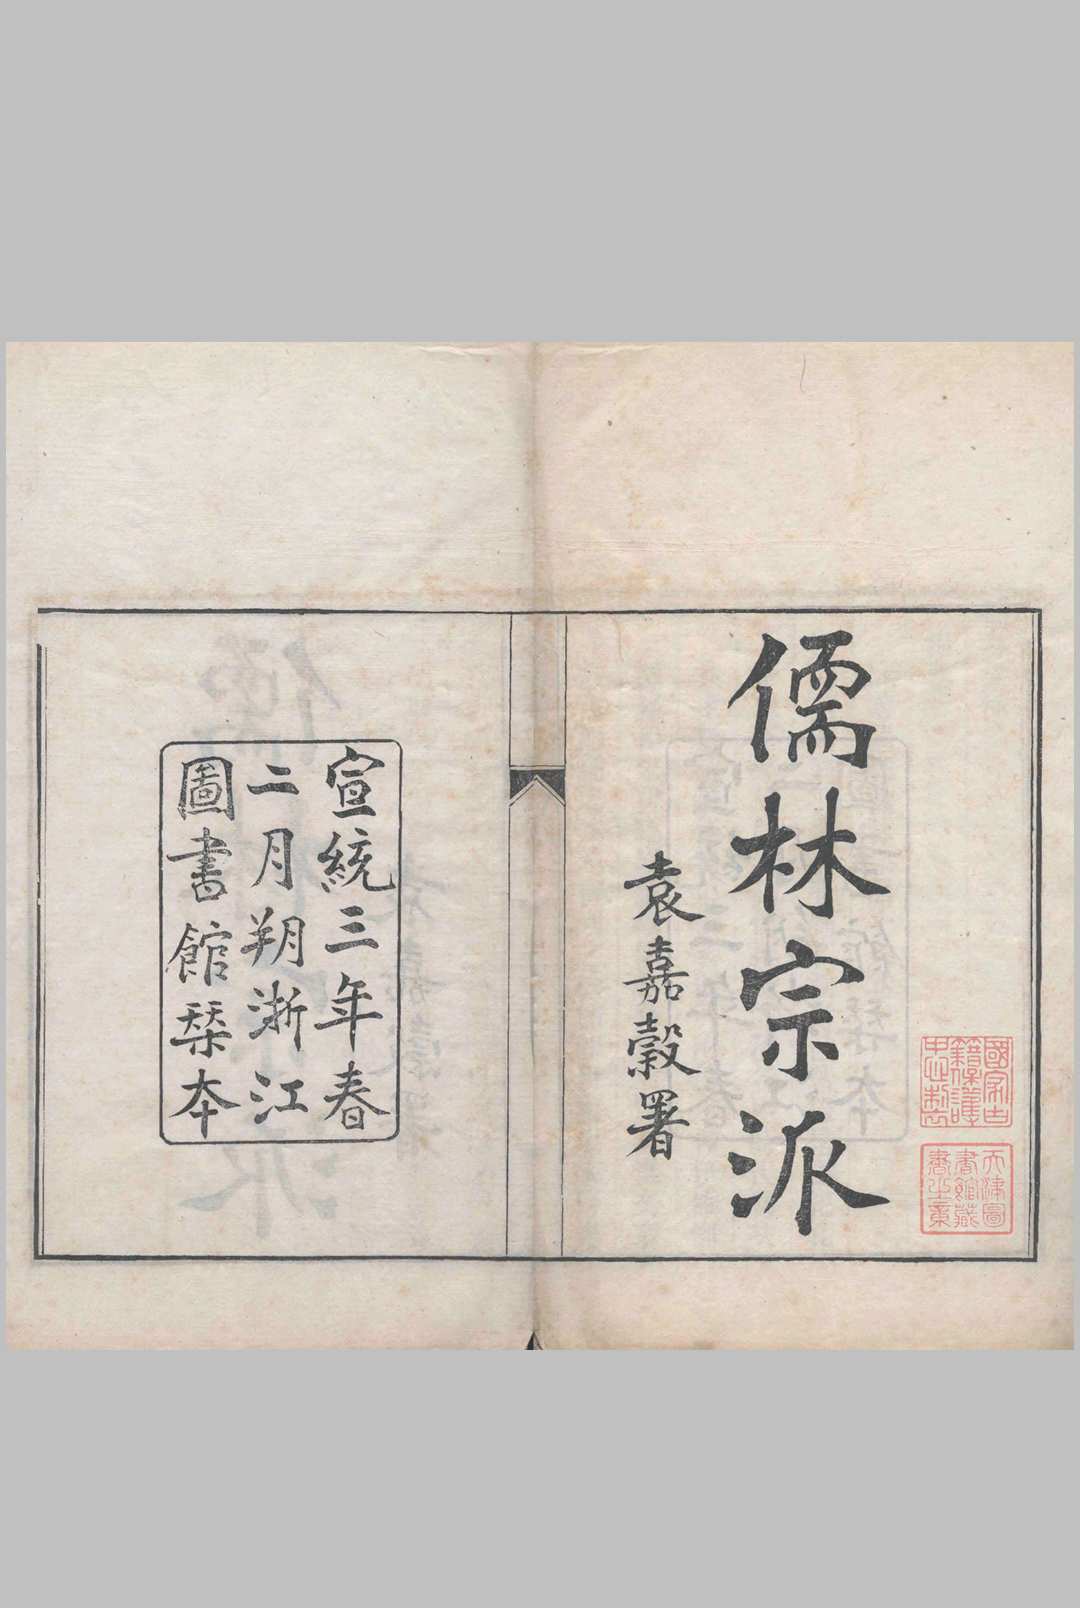 儒林宗派
袁嘉穀署
國家古
籍保護
中心制
天津圖
書館藏
書之章
宣統三年春
二月朔浙江
圖書館栞本